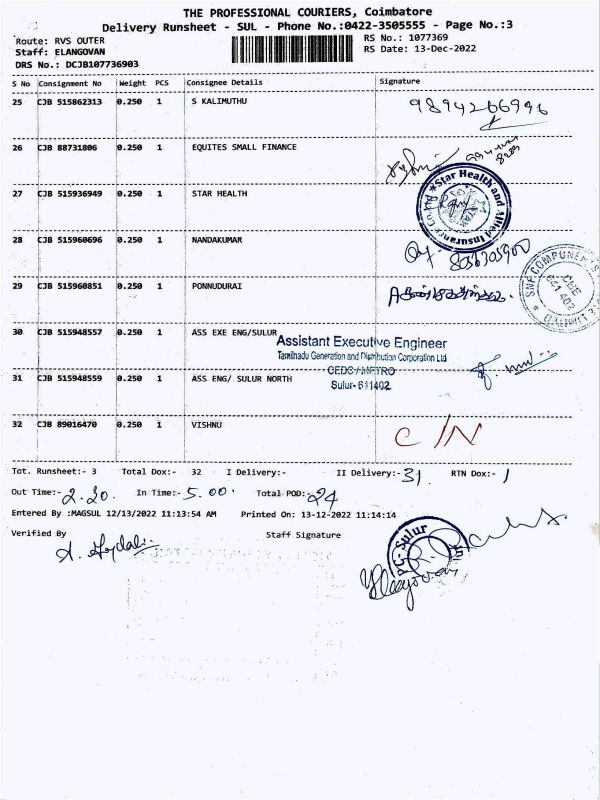 THE PROFESSIONAL COURIERS, Coimbatore
Delivery Runsheet - SUL - Phone No.:0422-3505555 - Page No.:3
Route: RVS OUTER RS No.: 1077369
Staff: ELANGOVAN RS Date: 13-Dec-2022
DRS No.: DCJB107736903
S No Consignment No Weight PCS Consignee Details Signature
25 CJB 515862313 0.250 1 S KALIMUTHU 9894266996
26 CJB 88731806 0.250 1 EQUITES SMALL FINANCE
27 CJB 515936949 0.250 1 STAR HEALTH
Star Health and Allied Insurance Co.
28 CJB 515960696 0.250 1 NANDAKUMAR
SNF COMPONENTS
CBE
641 402
29 CJB 515960851 0.250 1 PONNUDURAI
30 CJB 515948557 0.250 1 ASS EXE ENG/SULUR
Assistant Executive Engineer
Tamilnadu Generation and Distribution Corporation Ltd
CEDC / METRO
31 CJB 515948559 0.250 1 ASS ENG/ SULUR NORTH
Sulur- 641402
32 CJB 89016470 0.250 1 VISHNU C/N
Tot. Runsheet:- 3 Total Dox:- 32 I Delivery:- II Delivery:- 31. RTN Dox:- 1
Out Time:- 2.30. In Time:- 5.00. Total POD:- 24
Entered By :MAGSUL 12/13/2022 11:13:54 AM Printed On: 13-12-2022 11:14:14
Verified By Staff Signature
Sulur